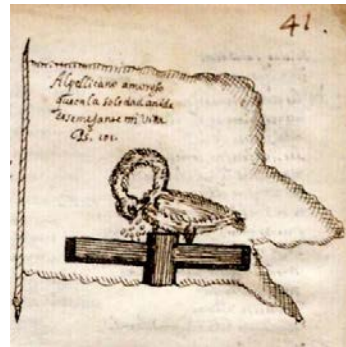 41.
Al pellicano amoroso
que en la soledad anida
es semejante mi vida
Ps. 101.